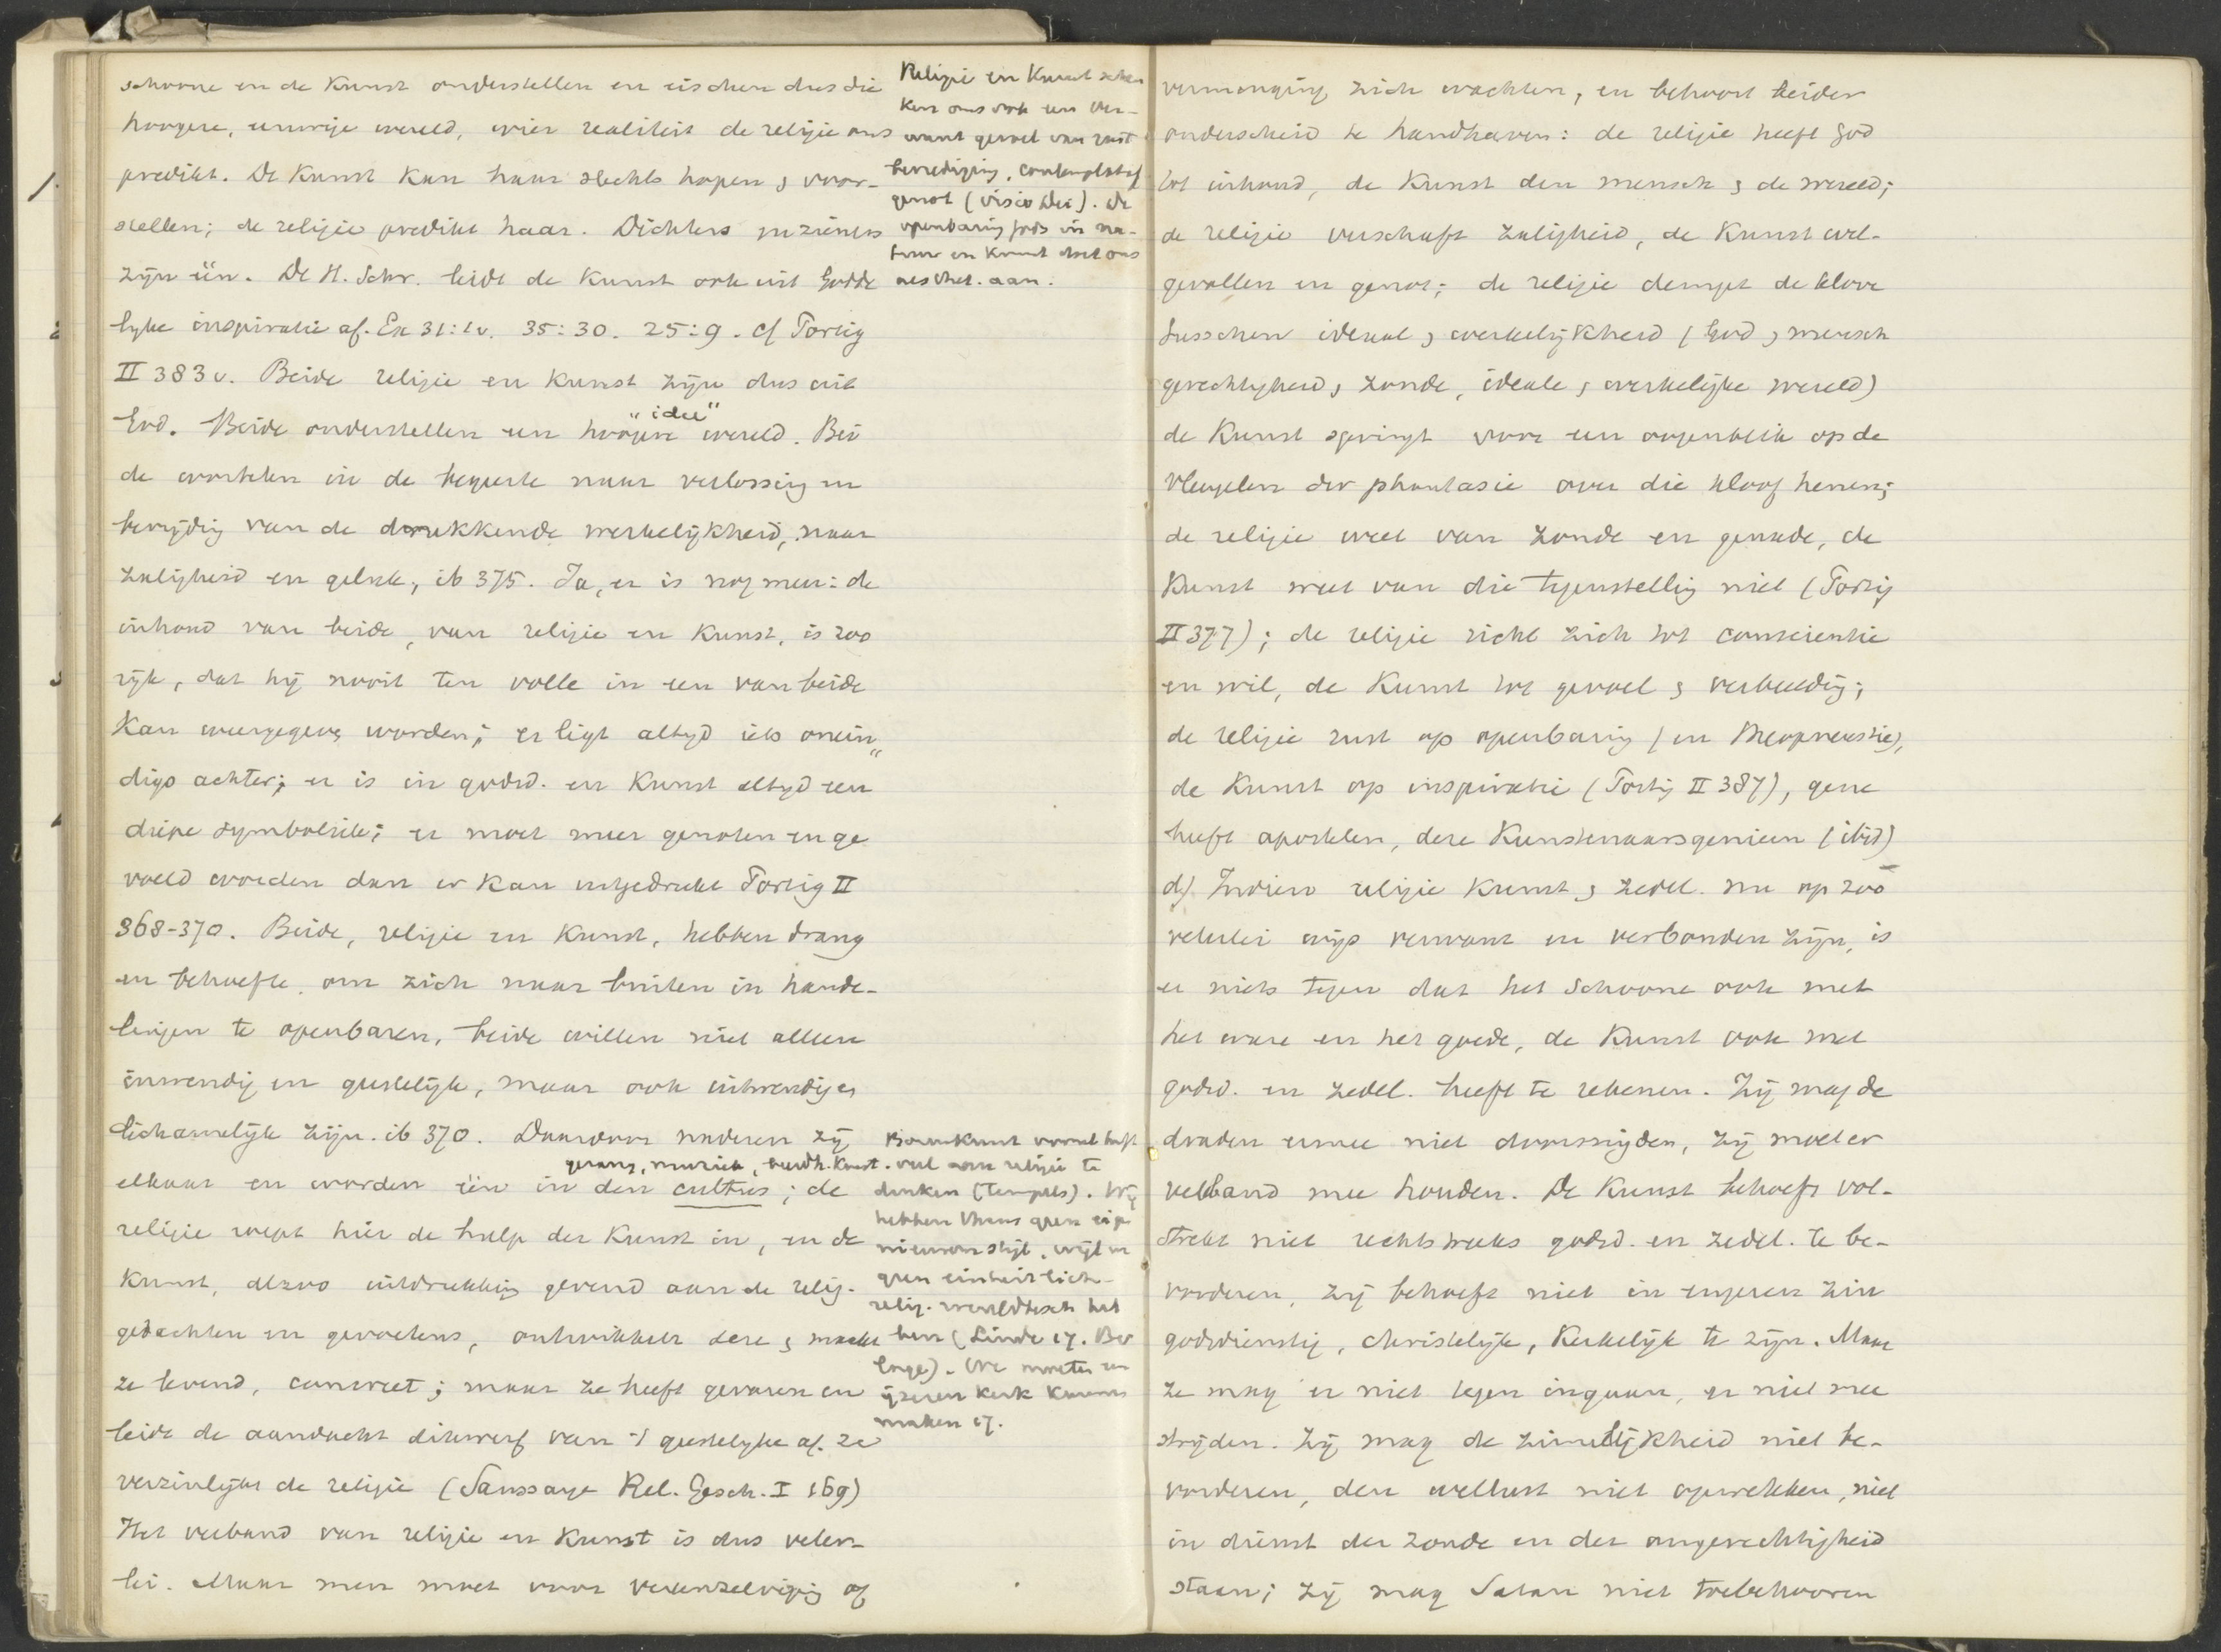 schoone en de Kunst onderstellen en eischen dus die
hoogere, eeuwige wereld, wier realiteit de religie ons
predikt. De Kunst kan haar slechts hopen & voor-
stellen; de religie predikt haar. Dichters en zieners
zijn één. De H. Schr. leidt de Kunst ook uit Godde
lyke inspiratie af. Ex 31: 35:30. 25:9. cf Portig
II 383v. Beide religie en Kunst zijn dus uit
God. Beide onderstellen een hoogere "idee" wereld. Bei
de wortelen in de begeerte naar verlossing en
bevrijdig van de drukkende werkelijkheid, naar
zaligheid en geluk, ib 375. Ja, er is nog meer: de
inhoud van beide, van religie en Kunst, is zoo
rijk, dat hij nooit ten volle in een van beide
Kan weergegeve worden; er ligt altyd iets onein„
digs achter; er is in godsd. en Kunst altyd een
diepe symboliek; er moet meer genoten en ge
voeld worden dan er kan uitgedrukt Portig II
368-370. Beide, religie en Kunst, hebben drang
en behoefte om zich naar buiten in hande-
lingen te openbaren, beide willen niet alleen
inwendig en geestelijk, maar ook uitwendig en
lichamelijk zijn. ib 370. Daardoor naderen zij
gezang, muziek, beeldh. Kunst.
elkaar en worden één in den cultus; de
religie roept hier de hulp der Kunst in, en de
Kunst, alzoo uitdrukking gevend aan de relig.
gedachten en gevoelens, ontwikkelt deze & maakt
ze levend, concreet; maar ze heeft gevaren en
leidt de aandacht dikwerf van 't geestelyke af. ze
verzinlijkt de religie (Saussaye Rel. Gesch. I 169)
Het verband van religie en Kunst is dus veler-
lei. Maar men moet voor vereenzelvigig of
Religie en Kunst schen
ken ons ook een ver-
want gevoel van rust
bevrediging, contemplatief
genot (visio Dei). De
openbaring Gods in na-
tuur en Kunst doet ons
aesthet. aan.
Bouwkunst vooral heeft
veel aan religie te
danken (tempels). Wij
hebben thans geen eige
nieuwen stijl, wijl we
geen einheitlich-
relig. wereldbesch heb
ben (Linde ej. Ber
lage). We moeten een
ijzeren kerk kunnen
maken ej.
vermenging zich wachten, en behoort beider
onderscheid te handhaven: de religie heeft God
tot inhoud, de Kunst den mensch & de wereld;
de religie verschaft zaligheid, de Kunst wel-
gevallen en genot; de religie dempt de klove
tusschen ideaal & werkelijkheid (God & mensch
gerechtigheid & zonde, ideale & werkelijke wereld)
de Kunst springt voor een oogenblik op de
vleugelen der phantasie over die kloof henen;
de religie weet van zonde en genade, de
Kunst weet van die tegenstellig niet (Portig
II 377); de religie richt zich tot conscientie
en wil, de Kunst tot gevoel & verbeeldig;
de religie rust op openbarig (en theopneustie),
de Kunst op inspiratie (Portig II 387), gene
heeft apostelen, deze Kunstenaarsgenieen (ibid)
d) Indien religie Kunst & zedel. nu op zoo
velerlei wijs verwant en verbonden zijn, is
er niets tegen dat het Schoone ook met
het ware en het goede, de Kunst ook met
godsd. en zedel. heeft te rekenen. Zij mag de
draden ermee niet doorsnijden, zij moet er
verband mee houden. De Kunst behoeft vol-
strekt niet rechtstreeks godsd. en zedel. te be-
vorderen, zij behoeft niet in engeren zin
godsdienstig, christelijk, Kerkelijk te zijn. Maar
ze mag er niet tegen ingaan, er niet mee
strijden. Zij mag de zinnelijkheid niet be-
vorderen, den wellust niet opwekken, niet
in dienst der zonde en der ongerechtigheid
staan; zij mag Satan niet toebehooren